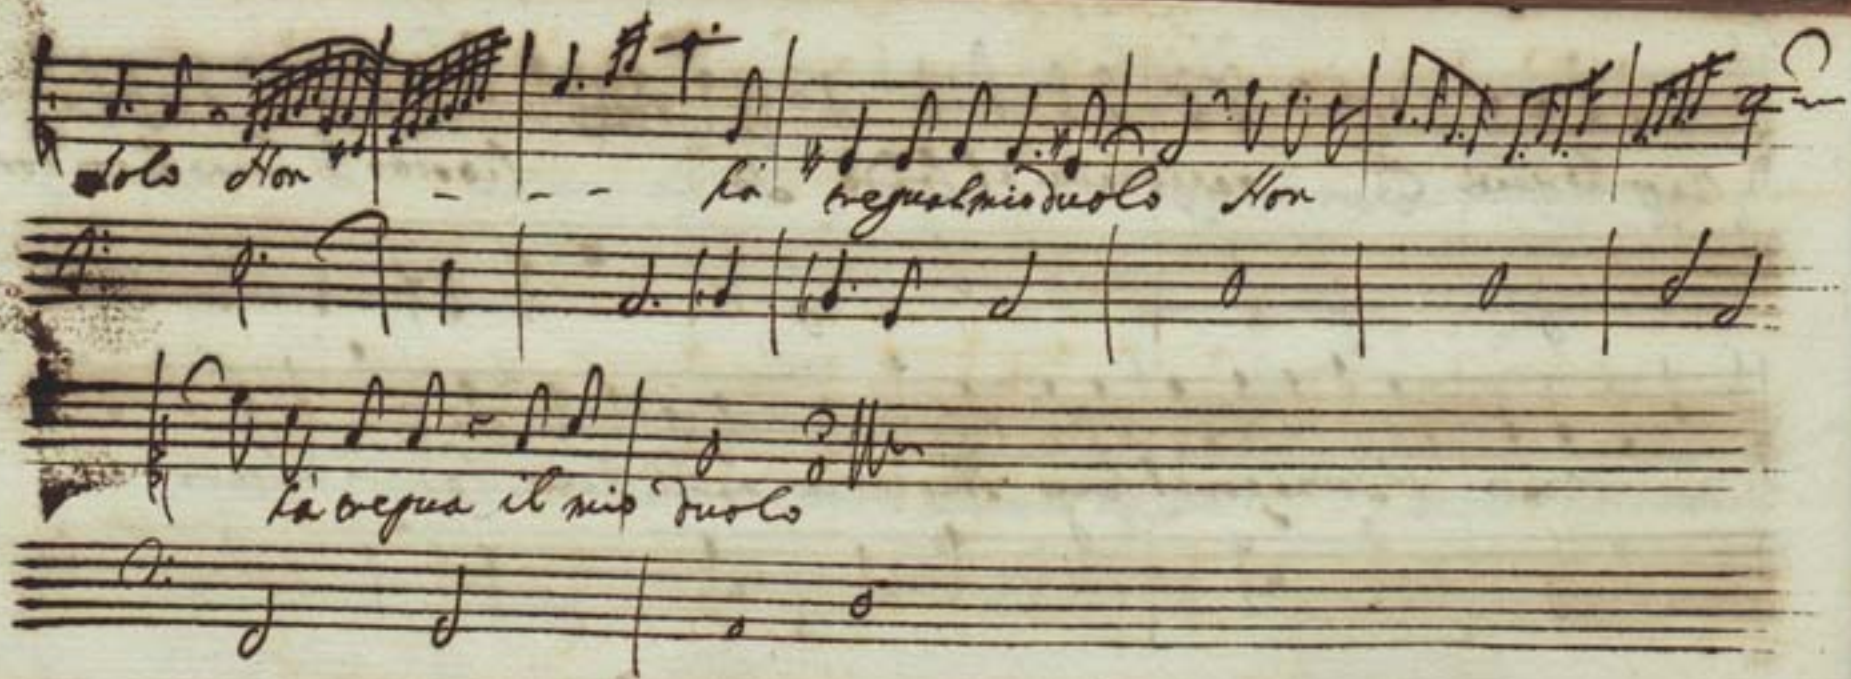 solo Non - - - hà tregua al mio duolo Non
hà tregua il mio duolo